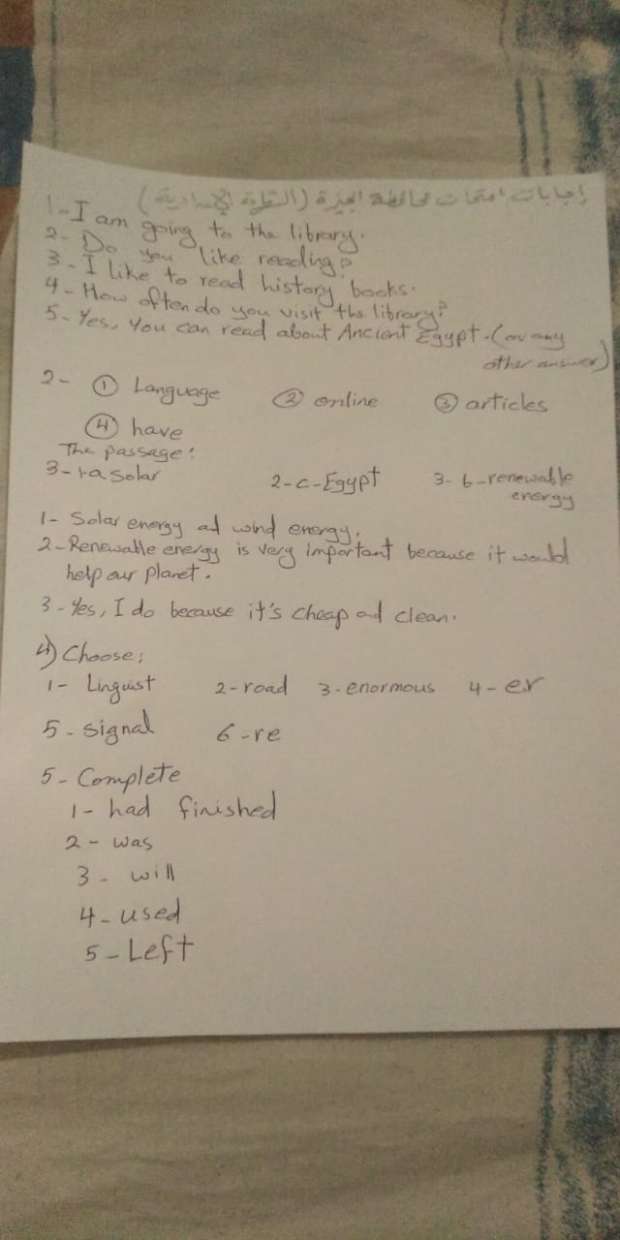 إجابات امتحان محافظة الجيزة (الشهادة الإعدادية)
1-I am going to the library.
2- Do you like reading?
3- I like to read history books.
4- How often do you visit the library?
5- Yes, You can read about Ancient Egypt. (or any other answer)
2- ① Language ② online ③ articles
④ have
The passage:
3-1-a Solar 2-c-Egypt 3- b-renewable energy
1- Solar energy ad wind energy.
2-Renewable energy is very important because it would
help our planet.
3-Yes, I do because it's cheap ad clean.
4) Choose:
1- Linguist 2-road 3-enormous 4- er
5-signal 6-re
5- Complete
1- had finished
2- was
3- will
4-used
5-Left